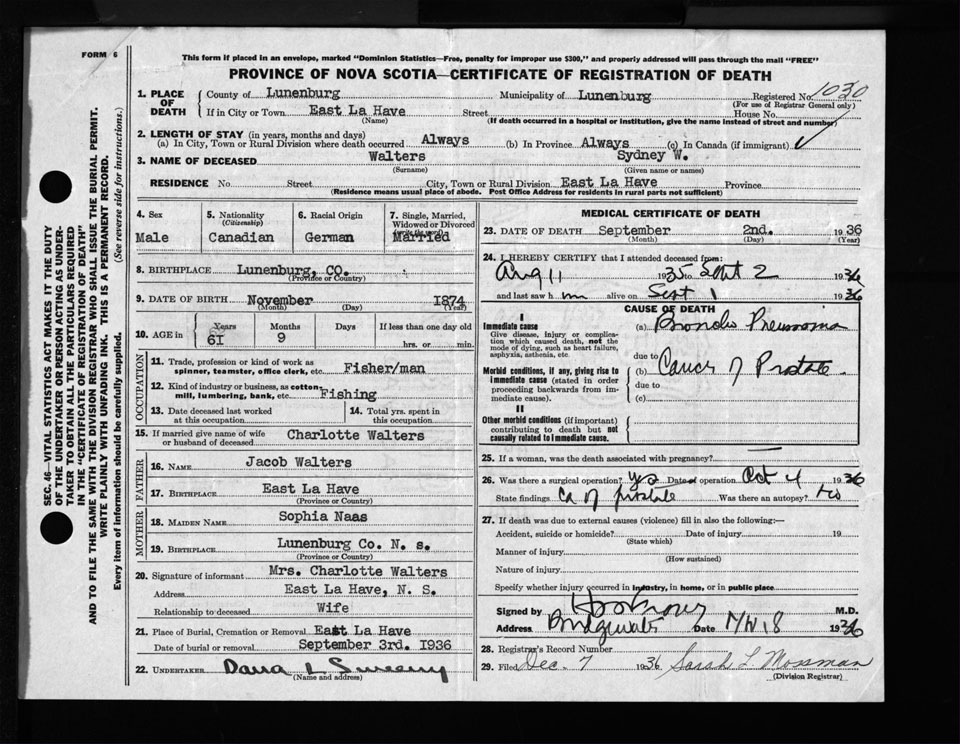 FORM 6
This form if placed in an envelope, marked "Dominion Statistics—Free, penalty for improper use $300," and properly addressed will pass through the mail "FREE"
PROVINCE OF NOVA SCOTIA—CERTIFICATE OF REGISTRATION OF DEATH
SEC. 46—VITAL STATISTICS ACT MAKES IT THE DUTY
OF THE UNDERTAKER OR PERSON ACTING AS UNDER-
TAKER TO OBTAIN ALL THE PARTICULARS REQUIRED
IN THE "CERTIFICATE OF REGISTRATION OF DEATH"
AND TO FILE THE SAME WITH THE DIVISION REGISTRAR WHO SHALL ISSUE THE BURIAL PERMIT.
WRITE PLAINLY WITH UNFADING INK. THIS IS A PERMANENT RECORD.
Every item of information should be carefully supplied. (See reverse side for instructions.)
1. PLACE OF DEATH County of Lunenburg Municipality of Lunenburg Registered No. 1030
(For use of Registrar General only)
If in City or Town East La Have Street House No.
(Name) (If death occurred in a hospital or institution, give the name instead of street and number)
2. LENGTH OF STAY (in years, months and days)
(a) In City, Town or Rural Division where death occurred Always (b) In Province Always (c) In Canada (if immigrant)
3. NAME OF DECEASED Walters Sydney W.
(Surname) (Given name or names)
RESIDENCE No. Street City, Town or Rural Division East La Have Province
(Residence means usual place of abode. Post Office Address for residents in rural parts not sufficient)
4. Sex Male
5. Nationality (Citizenship) Canadian
6. Racial Origin German
7. Single, Married, Widowed or Divorced (write the word) Married
8. BIRTHPLACE Lunenburg, CO.
(Province or Country)
9. DATE OF BIRTH November 1874
(Month) (Day) (Year)
10. AGE in Years 61 Months 9 Days If less than one day old hrs. or min.
OCCUPATION
11. Trade, profession or kind of work as spinner, teamster, office clerk, etc. Fisher/man
12. Kind of industry or business, as cotton-mill, lumbering, bank, etc. Fishing
13. Date deceased last worked at this occupation
14. Total yrs. spent in this occupation
15. If married give name of wife or husband of deceased Charlotte Walters
FATHER
16. NAME Jacob Walters
17. BIRTHPLACE East La Have
(Province or Country)
MOTHER
18. MAIDEN NAME Sophia Naas
19. BIRTHPLACE Lunenburg Co. N. s.
(Province or Country)
20. Signature of informant Mrs. Charlotte Walters
Address East La Have, N. S.
Relationship to deceased Wife
21. Place of Burial, Cremation or Removal East La Have
Date of burial or removal September 3rd. 1936
22. UNDERTAKER Dana L Sweeny
(Name and address)
MEDICAL CERTIFICATE OF DEATH
23. DATE OF DEATH September 2nd. 1936
(Month) (Day) (Year)
24. I HEREBY CERTIFY that I attended deceased from:
Aug 11 1935 to Sept 2 1936
and last saw him alive on Sept 1 1936
CAUSE OF DEATH
I
Immediate cause (a) Broncho Pneumonia
Give disease, injury or complication which caused death, not the mode of dying, such as heart failure, asphyxia, asthenia, etc. due to
Morbid conditions, if any, giving rise to immediate cause (stated in order proceeding backwards from immediate cause). (b) Cancer of Prostate
due to
(c)
II
Other morbid conditions (if important) contributing to death but not causally related to immediate cause.
25. If a woman, was the death associated with pregnancy?
26. Was there a surgical operation? yes Date of operation Oct 4 1936
State findings Ca of prostate Was there an autopsy? no
27. If death was due to external causes (violence) fill in also the following:—
Accident, suicide or homicide? Date of injury 19
(State which)
Manner of injury
(How sustained)
Nature of injury
Specify whether injury occurred in industry, in home, or in public place
Signed by M.D.
Address Bridgewater Date 1936
28. Registrar's Record Number
29. Filed Dec. 7 1936 Sarah L Mossman
(Division Registrar)